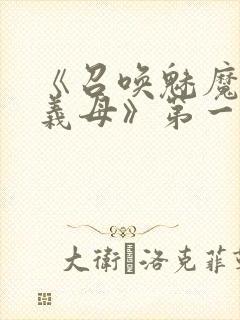 《召喚魅魔
義母》第一
大衛·洛克菲